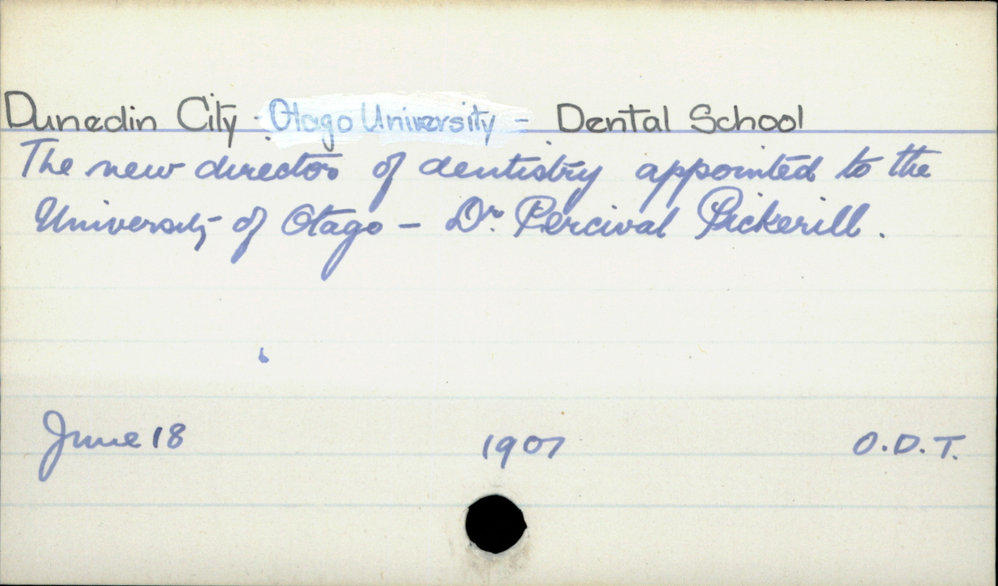 Dunedin City - Otago University - Dental School
The new director of dentistry appointed to the
University of Otago - Dr. Percival Pickerill.
June 18 1907 O.D.T.